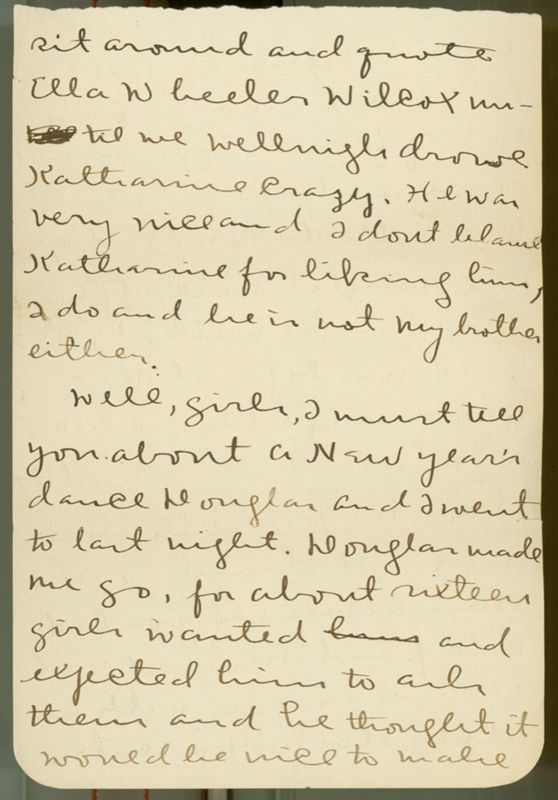 sit around and quote
Ella Wheeler Wilcox un-
til we wellnigh drove
Katharine crazy. He was
very nice and I dont blame
Katharine for liking him,
I do and he is not my brother
either.
Well, girls, I must tell
you about a New year's
dance Douglas and I went
to last night. Douglas made
me go, for about sixteen
girls wanted him and
expected him to ask
them and he thought it
would be nice to make